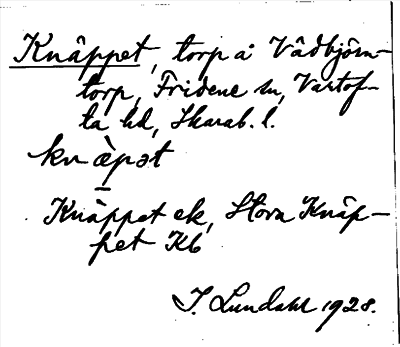 Knäppet, torp å Vådbjörn-
torp, Fridene sn, Vartof-
ta hd, Skarab. l.
knæ̀pət
Knäppet ek, Stora Knäp-
pet Kb
I. Lundahl 1928.